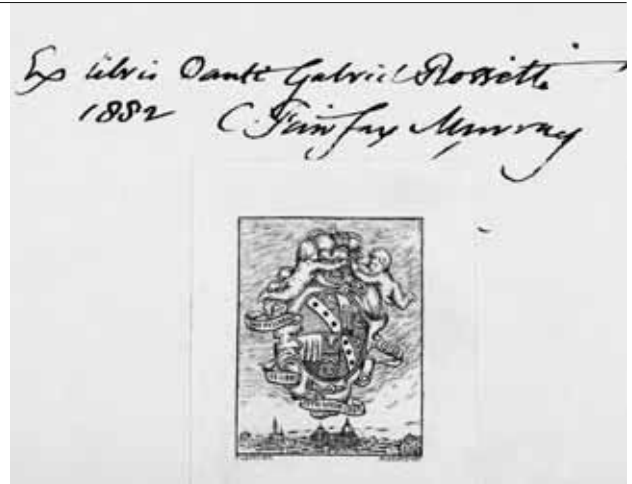 Ex libris Dante Gabriel Rossetti
1882 C. Fairfax Murray